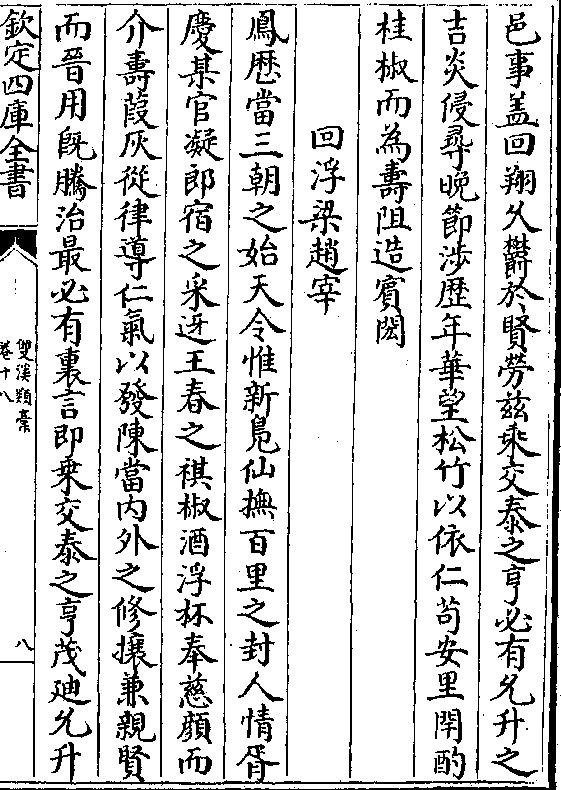 邑事盖回翔久欝於賢勞兹乘交泰之亨必有允升之
吉炎侵尋晚節涉歴年華望松竹以依仁苟安里閈酌
桂椒而為壽阻造賓閎
回浮梁趙宰
鳳歴當三朝之始天令惟新鳬仙撫百里之封人情胥
慶某官凝郎宿之采迓王春之祺椒酒浮杯奉慈顔而
介壽葭灰從律導仁氣以發陳當内外之修攘兼親賢
而晉用旣騰治最必有裏言即乗交泰之亨茂廸允升
欽定四庫全書
雙溪類稾
卷十八
八